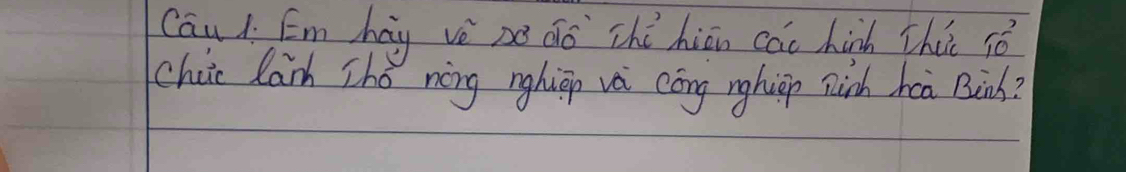 Câu 1: Em hãy vẽ sơ đồ thể hiện các hình thức tổ
chức lãnh thổ nông nghiệp và công nghiệp tỉnh hoà Bình?